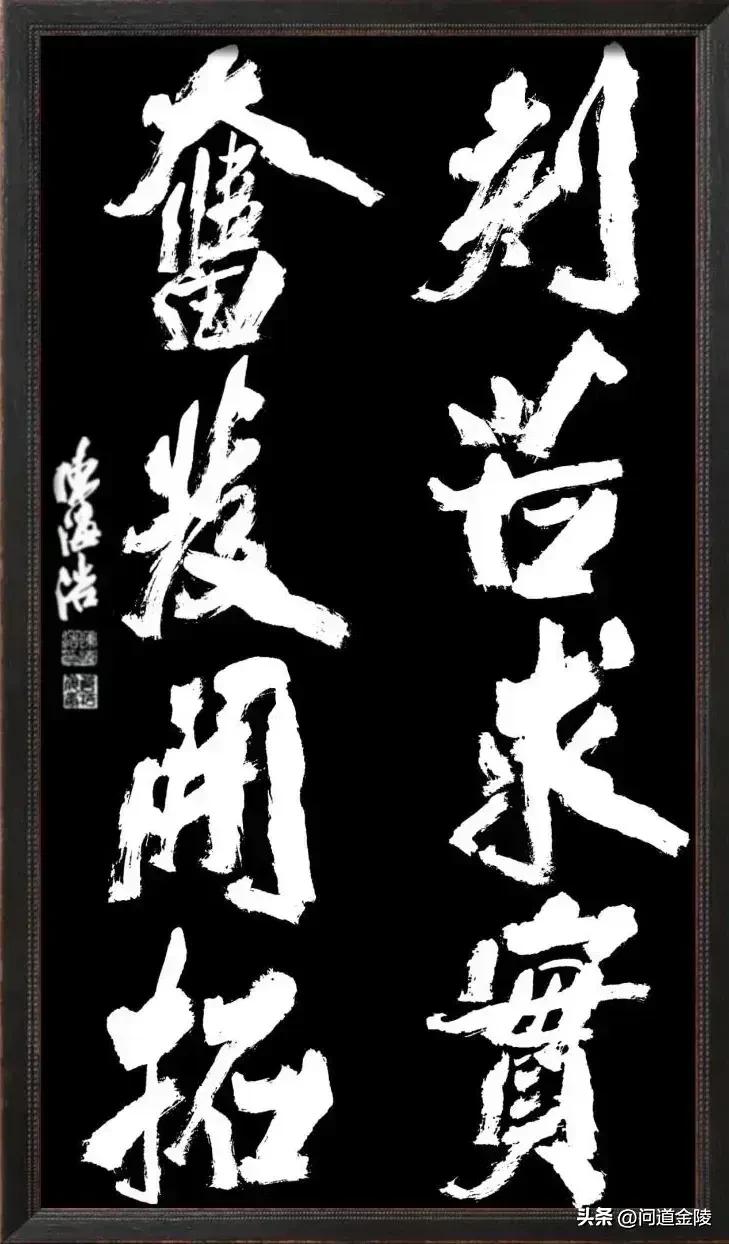 刻苦求實
奮發開拓
陳海浩
头条 @问道金陵